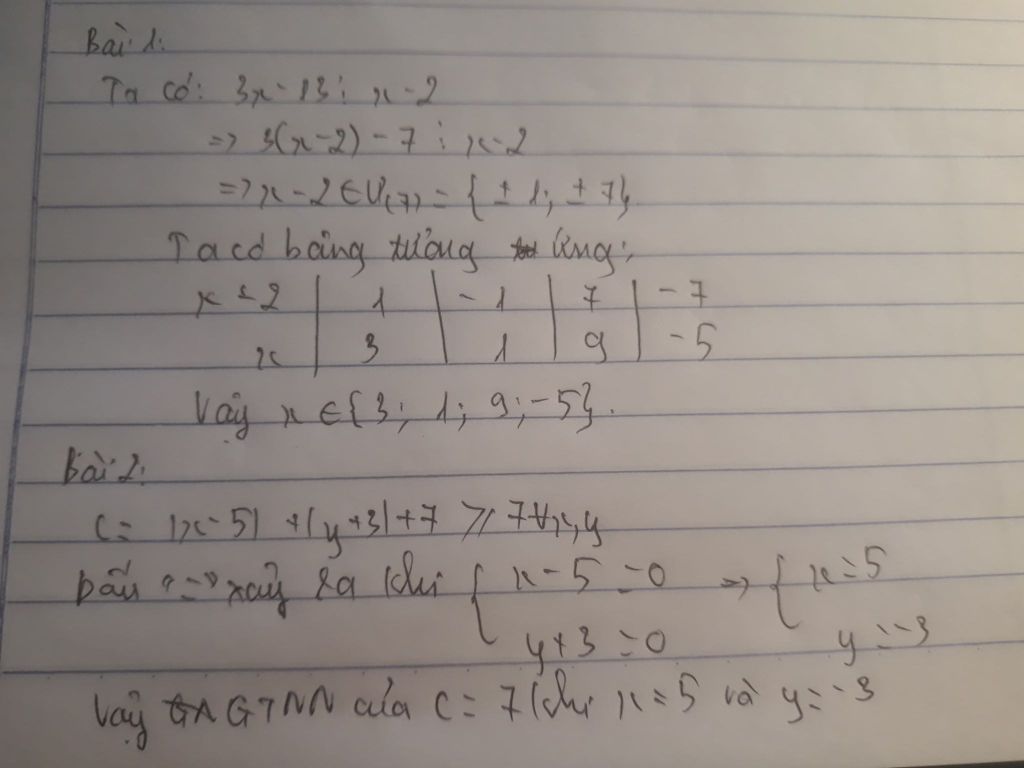 Bài 1:
Ta có: 3x - 13 ⋮ x - 2
=> 3(x-2) - 7 ⋮ x-2
=> x - 2 ∈ Ư(7) = { ± 1; ± 7}
Ta có bảng tương ứng:
x - 2 | 1 | -1 | 7 | -7
x | 3 | 1 | 9 | -5
Vậy x ∈ {3; 1; 9; -5}.
Bài 2:
C = |x-5| + |y+3| + 7 ≥ 7 ∀ x, y
Dấu "=" xảy ra khi { x - 5 = 0 => { x = 5
y + 3 = 0 y = -3
Vậy GTNN của C = 7 khi x = 5 và y = -3